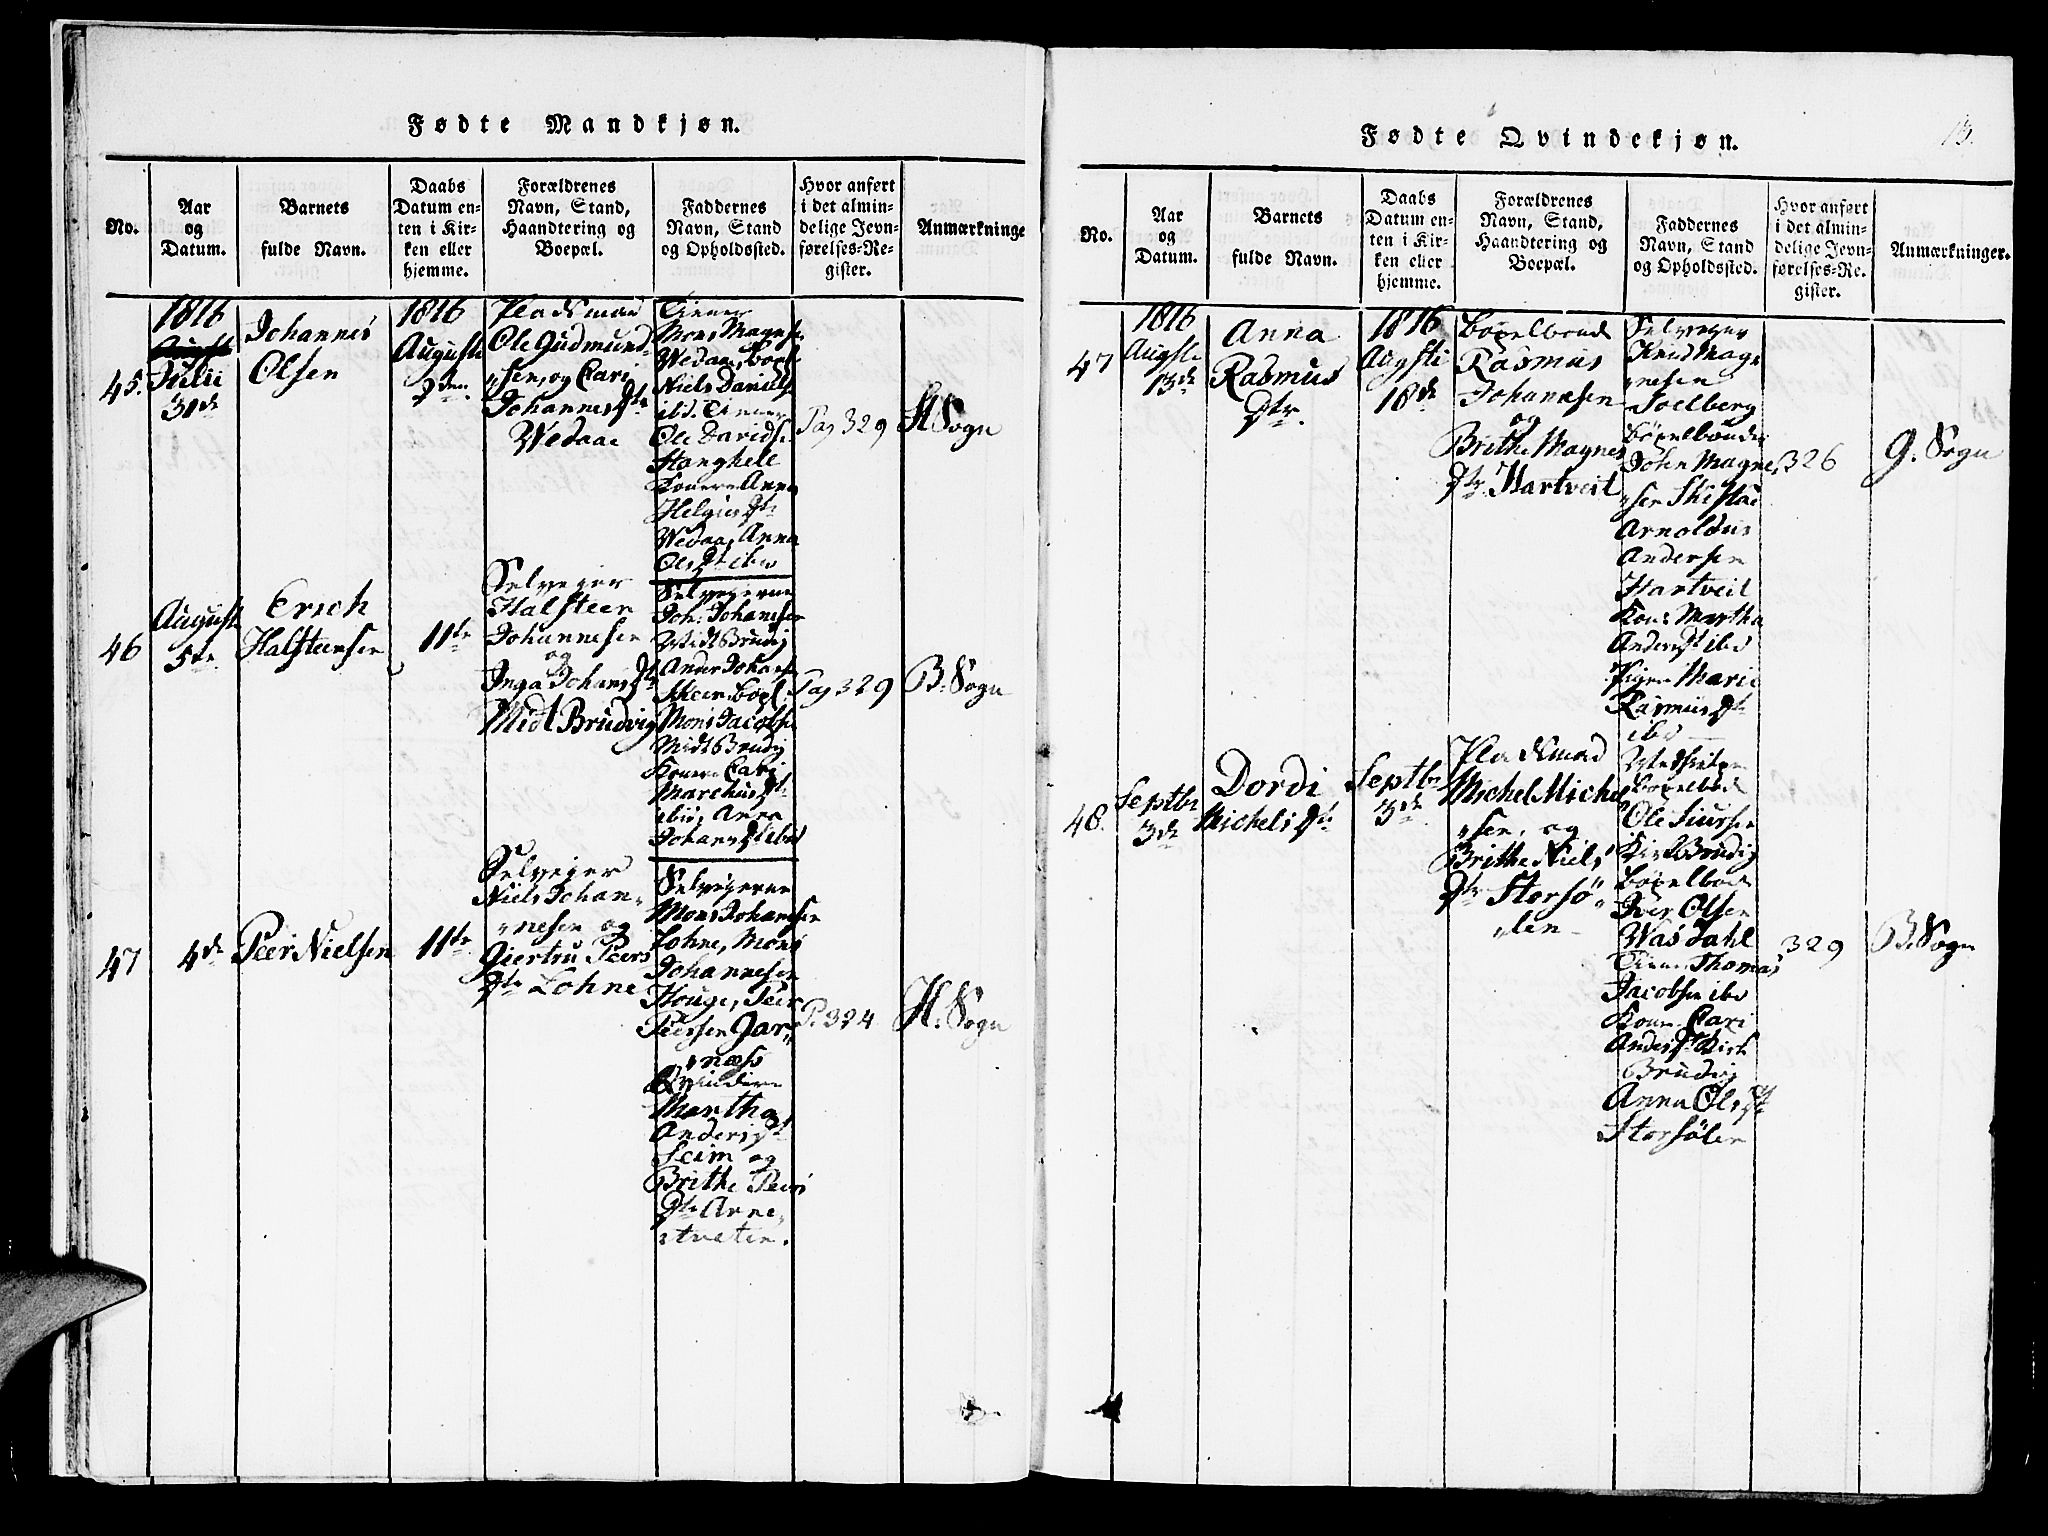 Fødte Mandkjøn.
No.
Aar
og
Datum.
Barnets
fulde Navn.
Daabs
Datum en-
ten i Kir-
ken eller
hjemme.
Forældrenes
Navn, Stand,
Haandtering og
Boepæl.
Faddernes
Navn, Stand
og Opholdssted.
Hvor anført
i det almin-
delige Jevn-
førelses-Re-
gister.
Anmærkninge
45.
1816
Julii
31de
Johannes
Olsen
1816
Augusti
Pladsmand
Ole Gudmund-
sen, og Cari
Johannes Dtr
Wedaae
Tiener
Mons Magnes.
Wedaa, Bopl
Niels Daniels
ibd. Tiener
Ole Davids
Stanghell
Konerne Anna
Helgies Dtr
Wedaa, Anna
Ols Dtr ibd
Pag 329
H Sogn
46
August
5te
Erich
Halsteensen
11te
Selveier
Halsteen
Johannesen
og
Inga Johans Dtr
Midt Brudvig
Selveierne
Joh: Johanesen
Midt Brudvig
Ander Johanes
Skeen, Bopl.
Mons Jacobsen
Midt Brudvig
Konerne Cari
Marchus Dtr
ibid, Anna
Johans Dtr ibd
Pag 329
B: Sogn
47
4de
Peer Nielsen
11te
Selveier
Niels Johan-
nesen og
Giertru Peers
Dtr Lohne
Selveierne
Mons Johannesen
Lohne, Mons
Johannesen
Houge, Peer
Peersen Gar-
næss
Qvinderne
Martha
Anders Dtr
Seim og
Brithe Peers
Dtr Arne-
tveten.
P. 324
H: Sogn
Fødte Qvindekjøn.
13.
No.
Aar
og
Datum.
Barnets
fulde Navn.
Daabs
Datum en-
ten i Kir-
ken eller
hjemme.
Forældrenes
Navn, Stand,
Haandtering og
Boepæl.
Faddernes
Navn, Stand
og Opholdssted.
Hvor anført
i det almin-
delige Jevn-
førelses-Re-
gister.
Anmærkninger.
47
1816
Augsti
13de
Anna
Rasmus
Dtr.
1816
Augsti
18de
Boxelbond
Rasmus
Johanesen
og
Brithe Magnes
Dtr. Hartveit
Selveier
Knud Mag-
nesen
Solberg
Boxelbonde
John Magne-
sen Skistad
Arnoldus
Andersen
Hartveit
Kone Martha
Anders Dt ibd
Pigen Marie
Rasmus Dtr
ibd
326
G. Sogn
48.
Septbr
3de
Dordi
Michels Dtr
Septbr
3de
Pladsmand
Michel Michel
sen, og
Brithe Niels
Dtr Storsö-
len
Boxelbond
Ole Siursen
Kirk Brudvig
Boxelbond
Iver Olsen
Wasdahl
Tiener Thomas
Jacobsen ibd
Kone Cari
Anders Dt Kirk
Brudvig
Anna Ols Dt
Storsölen
329
B. Sogn